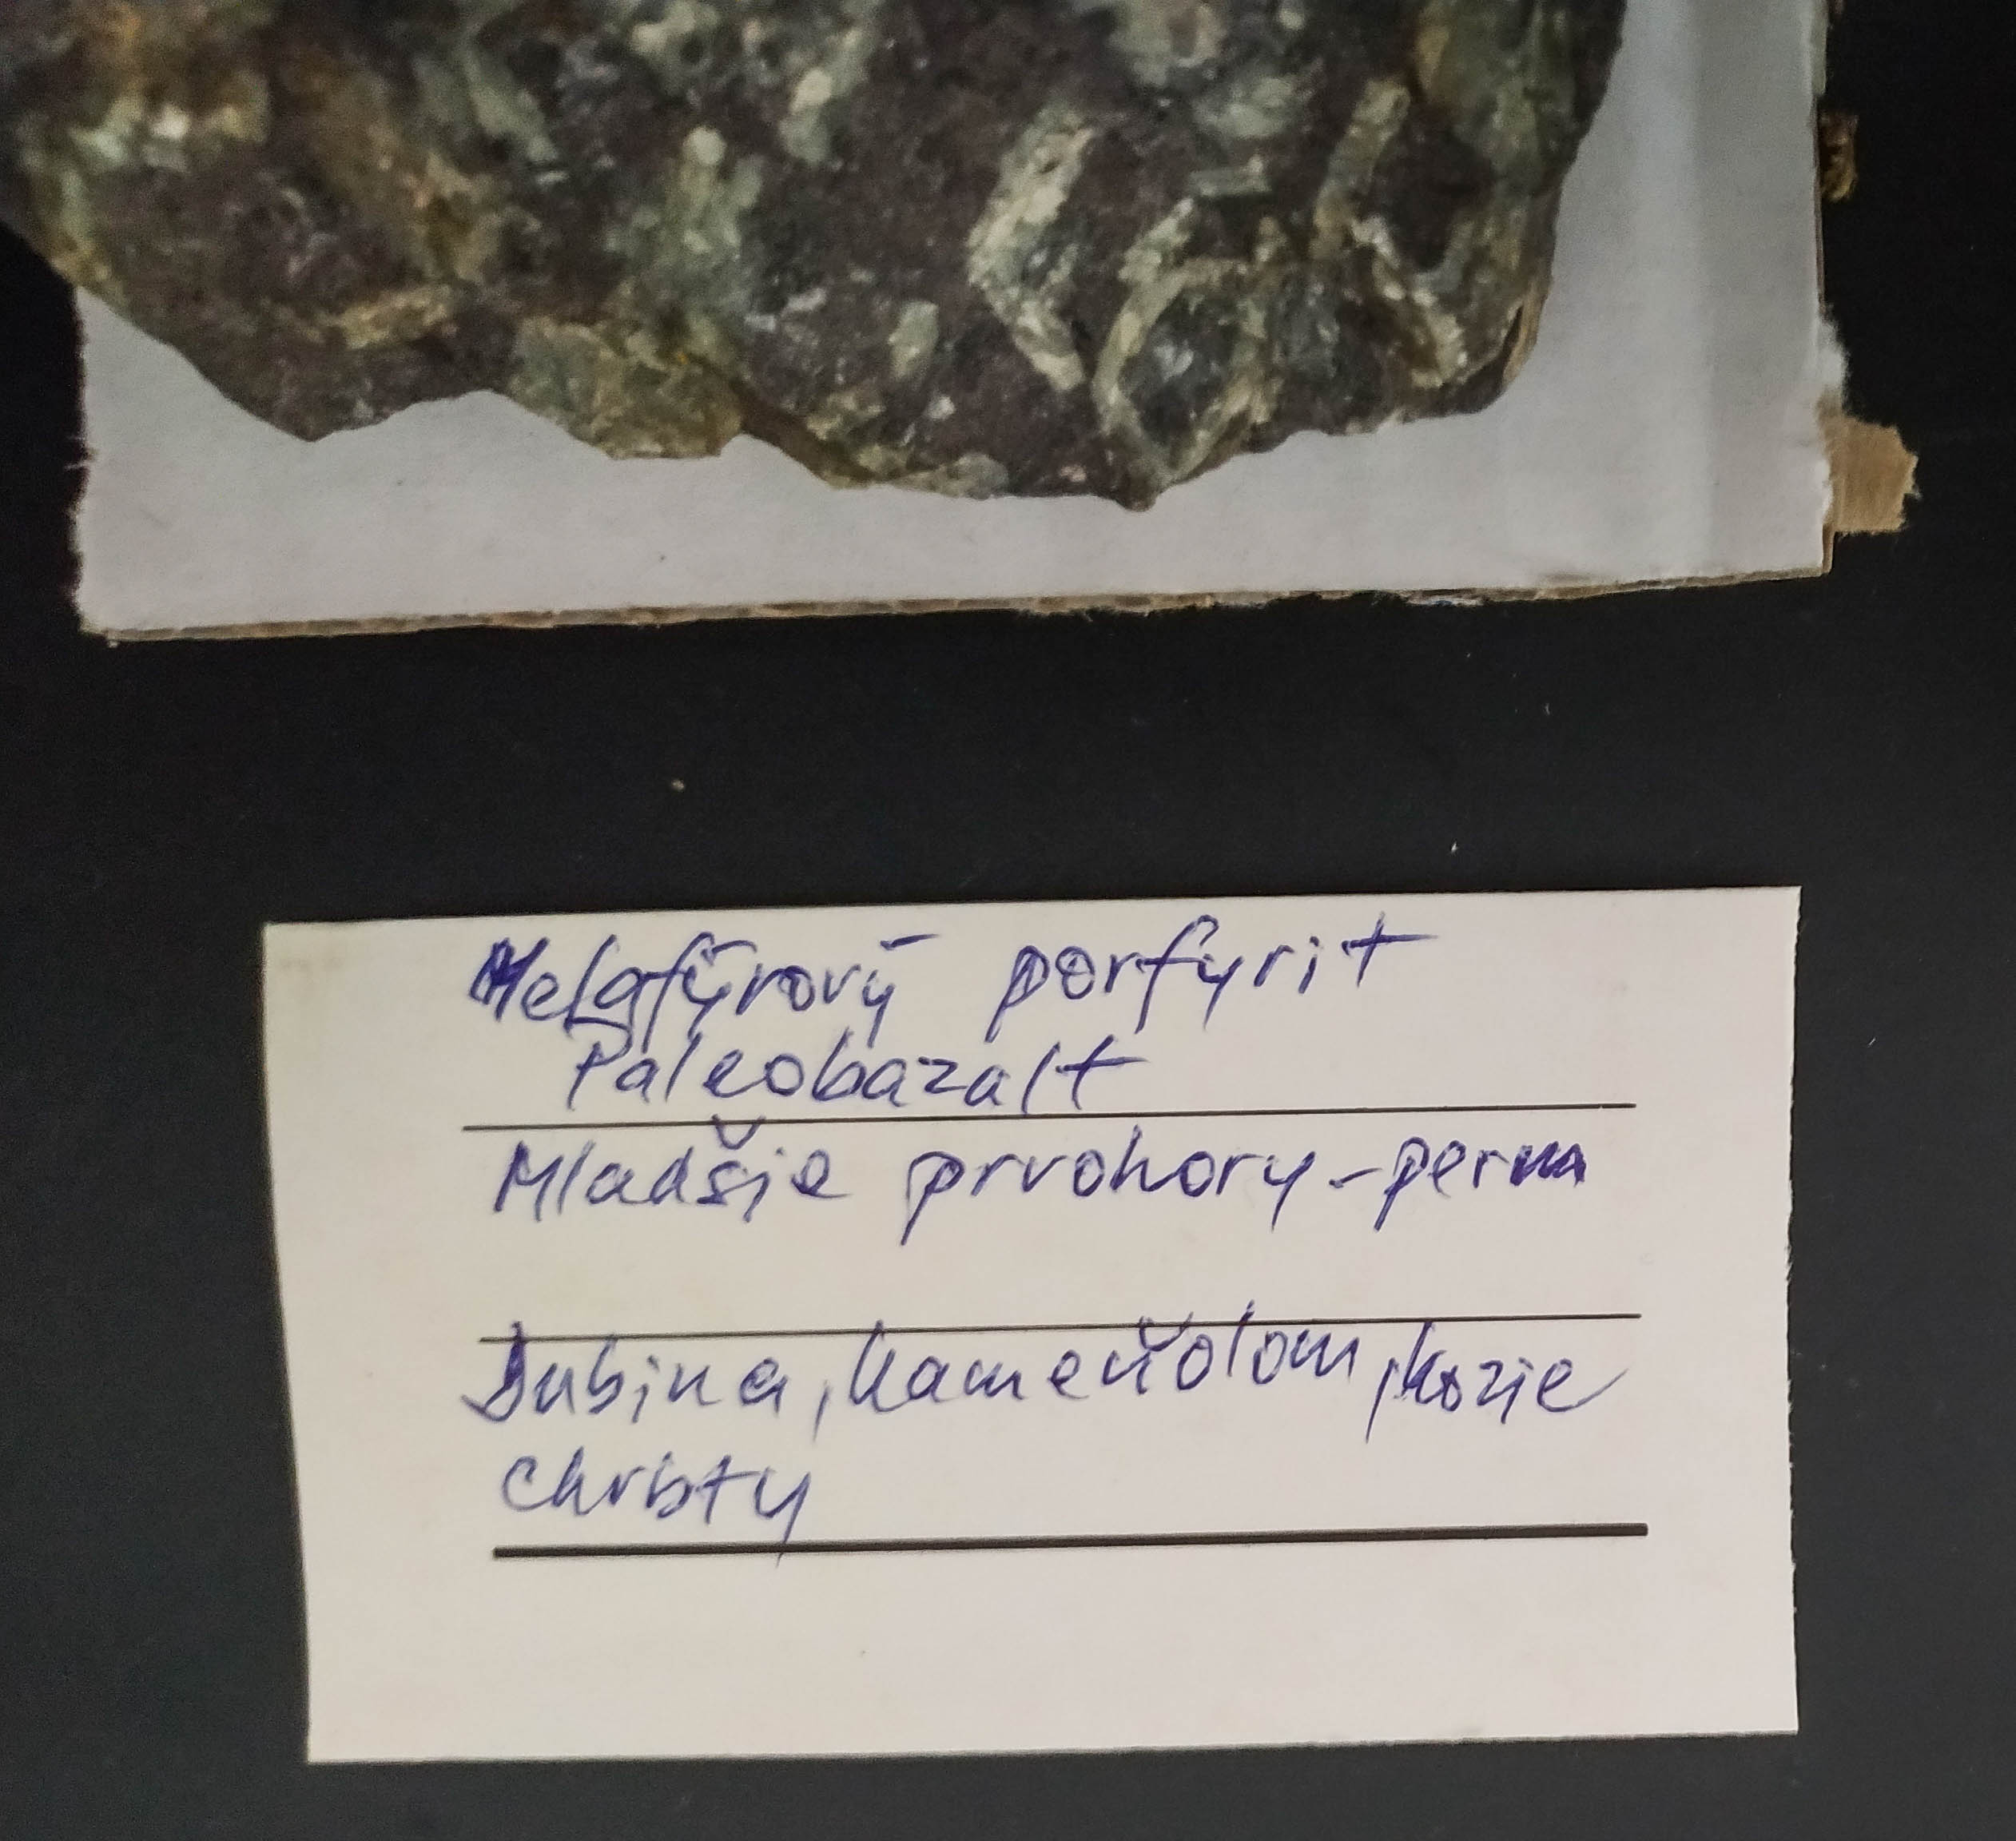 Melafýrový porfyrit
Paleobazalt
Mladšie prvohory-perm
Dubina, kameňolom, kozie
chrbty